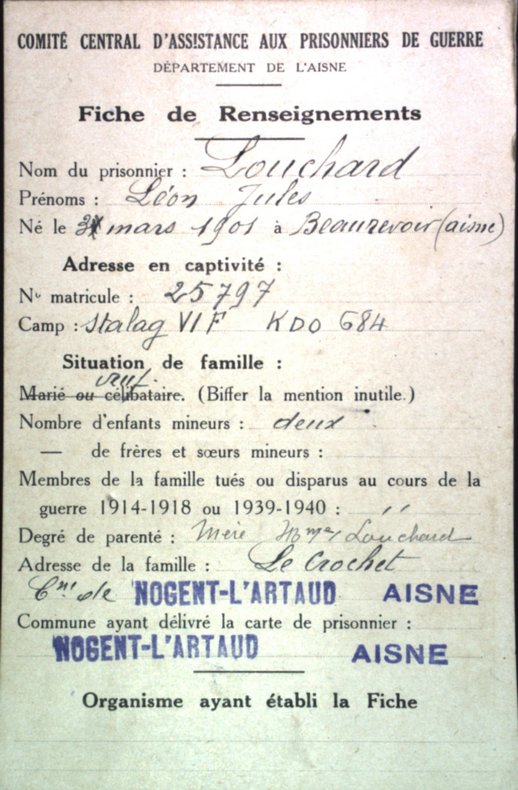 COMITÉ CENTRAL D'ASSISTANCE AUX PRISONNIERS DE GUERRE
DÉPARTEMENT DE L'AISNE
Fiche de Renseignements
Nom du prisonnier : Louchard
Prénoms : Léon Jules
Né le mars 1901 à Beaurevoir (aisne)
Adresse en captivité :
No matricule : 25797
Camp : Stalag VI F KDO 684
Situation de famille :
veuf.
Marié ou célibataire. (Biffer la mention inutile.)
Nombre d'enfants mineurs : deux
— de frères et sœurs mineurs :
Membres de la famille tués ou disparus au cours de la
guerre 1914-1918 ou 1939-1940 : "
Degré de parenté : Mère Mme Louchard
Adresse de la famille : Le Crochet
Cne de NOGENT-L'ARTAUD AISNE
Commune ayant délivré la carte de prisonnier :
NOGENT-L'ARTAUD AISNE
Organisme ayant établi la Fiche